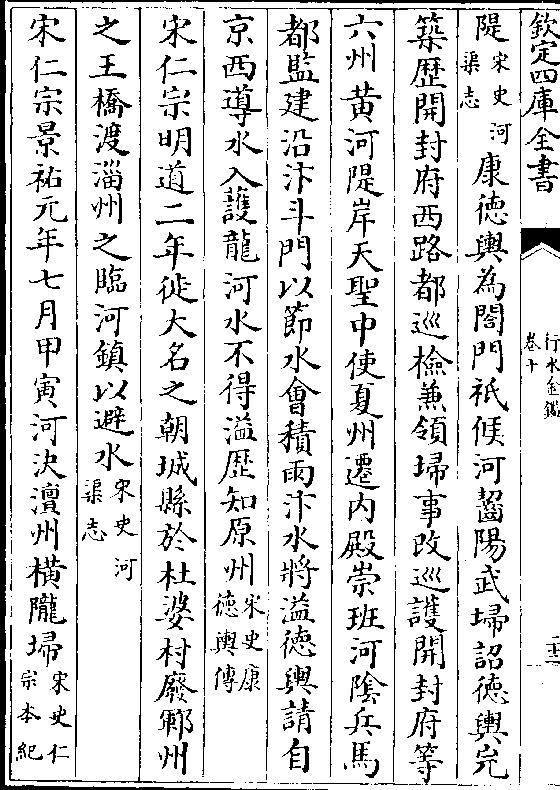 欽定四庫全書
行水金鑑
卷十
隄宋史河渠志 康德輿為閤門祇候河齧陽武埽詔德輿完
築歷開封府西路都巡檢兼領埽事改巡護開封府等
六州黄河隄岸天聖中使夏州遷内殿崇班河隂兵馬
都監建沿汴斗門以節水會積雨汴水將溢德輿請自
京西導水入護龍河水不得溢歴知原州宋史康德輿傳
宋仁宗明道二年徙大名之朝城縣於杜婆村廢鄆州
之王橋渡淄州之臨河鎮以避水宋史河渠志
宋仁宗景祐元年七月甲寅河決澶州横隴埽宋史仁宗本紀